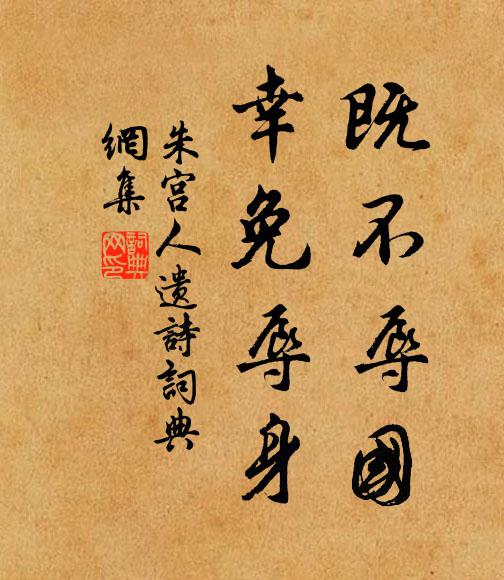 既不辱國
幸免辱身
朱宫人遗詩詞典
網集
詞典
网印